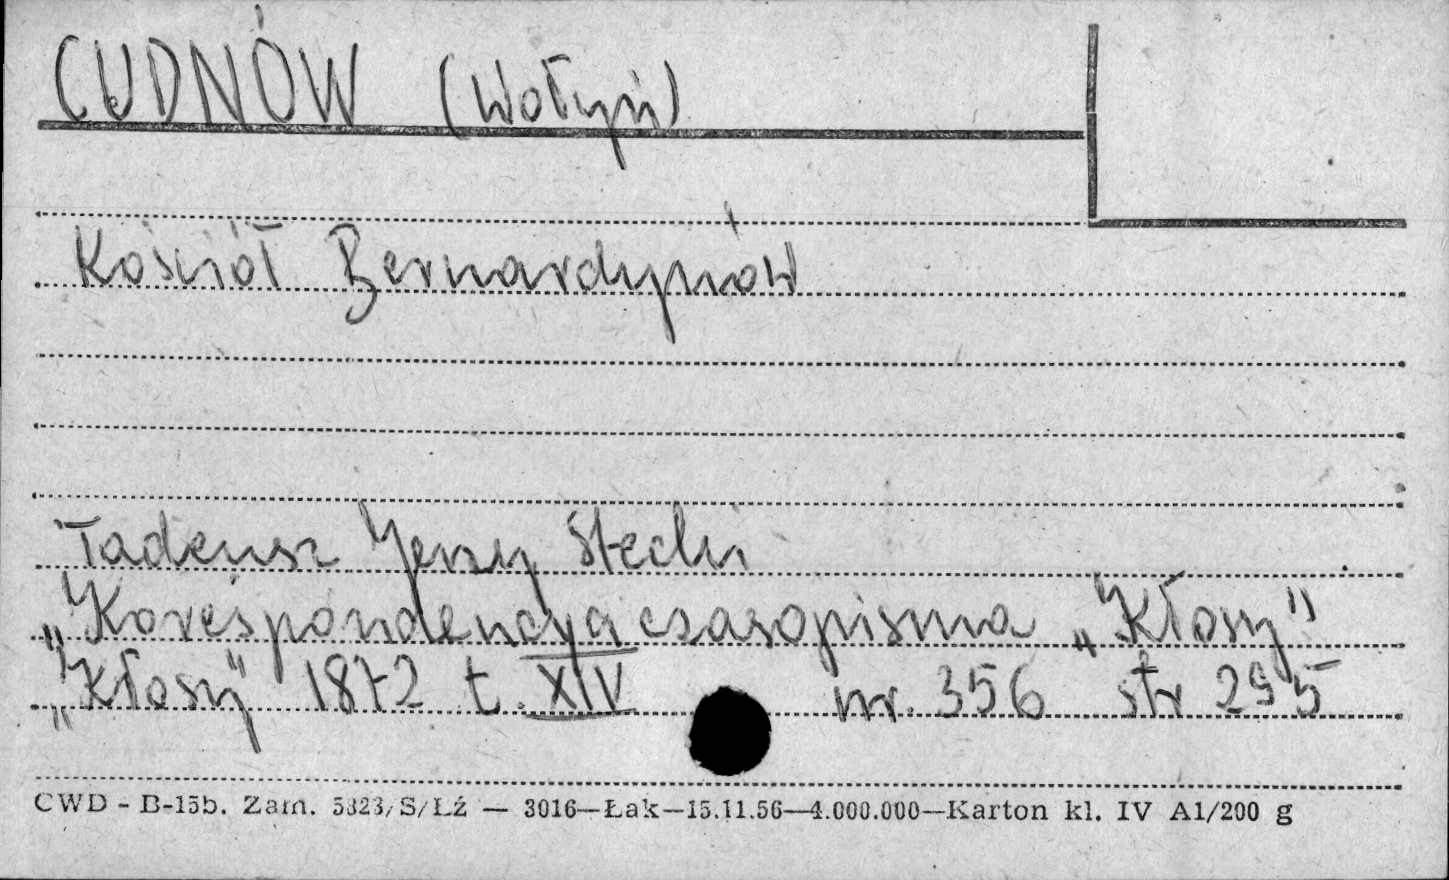 CUDNÓW (Wołyń)
Kościół Bernardynów
Tadeusz Jerzy Stecki
„Korespondencja czasopisma „Kłosy"
„Kłosy" 1872 t. XIV nr. 356 str 295
CWD - B-15b. Zam. 5323/S/Łź — 3016—Łak—15.11.56—4.000.000—Karton kl. IV A1/200 g